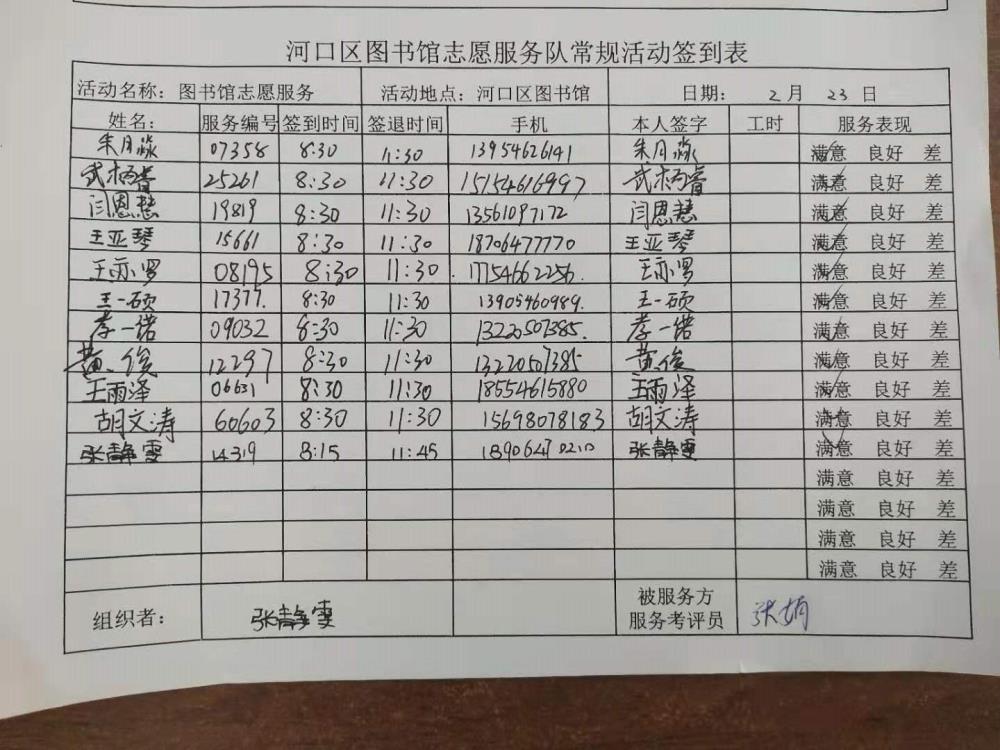 河口区图书馆志愿服务队常规活动签到表
活动名称：图书馆志愿服务 活动地点：河口区图书馆 日期： 2 月 23 日
姓名： 服务编号 签到时间 签退时间 手机 本人签字 工时 服务表现
朱月淼 07358 8:30 11:30 13954626141 朱月淼 满意 良好 差
武柄睿 25261 8:30 11:30 15154616997 武柄睿 满意 良好 差
闫恩慧 19819 8:30 11:30 13561097172 闫恩慧 满意 良好 差
王亚琴 15661 8:30 11:30 18706477770 王亚琴 满意 良好 差
王亦罗 08195 8:30 11:30 17754662256 王亦罗 满意 良好 差
王一硕 17377 8:30 11:30 13905460989 王一硕 满意 良好 差
李一诺 09032 8:30 11:30 13220507385 李一诺 满意 良好 差
黄俊 12297 8:30 11:30 13220507385 黄俊 满意 良好 差
王雨泽 06631 8:30 11:30 18554615880 王雨泽 满意 良好 差
胡文涛 60603 8:30 11:30 15698078183 胡文涛 满意 良好 差
张静雯 14319 8:15 11:45 18906470210 张静雯 满意 良好 差
满意 良好 差
满意 良好 差
满意 良好 差
满意 良好 差
组织者： 张静雯 被服务方 服务考评员 张娟